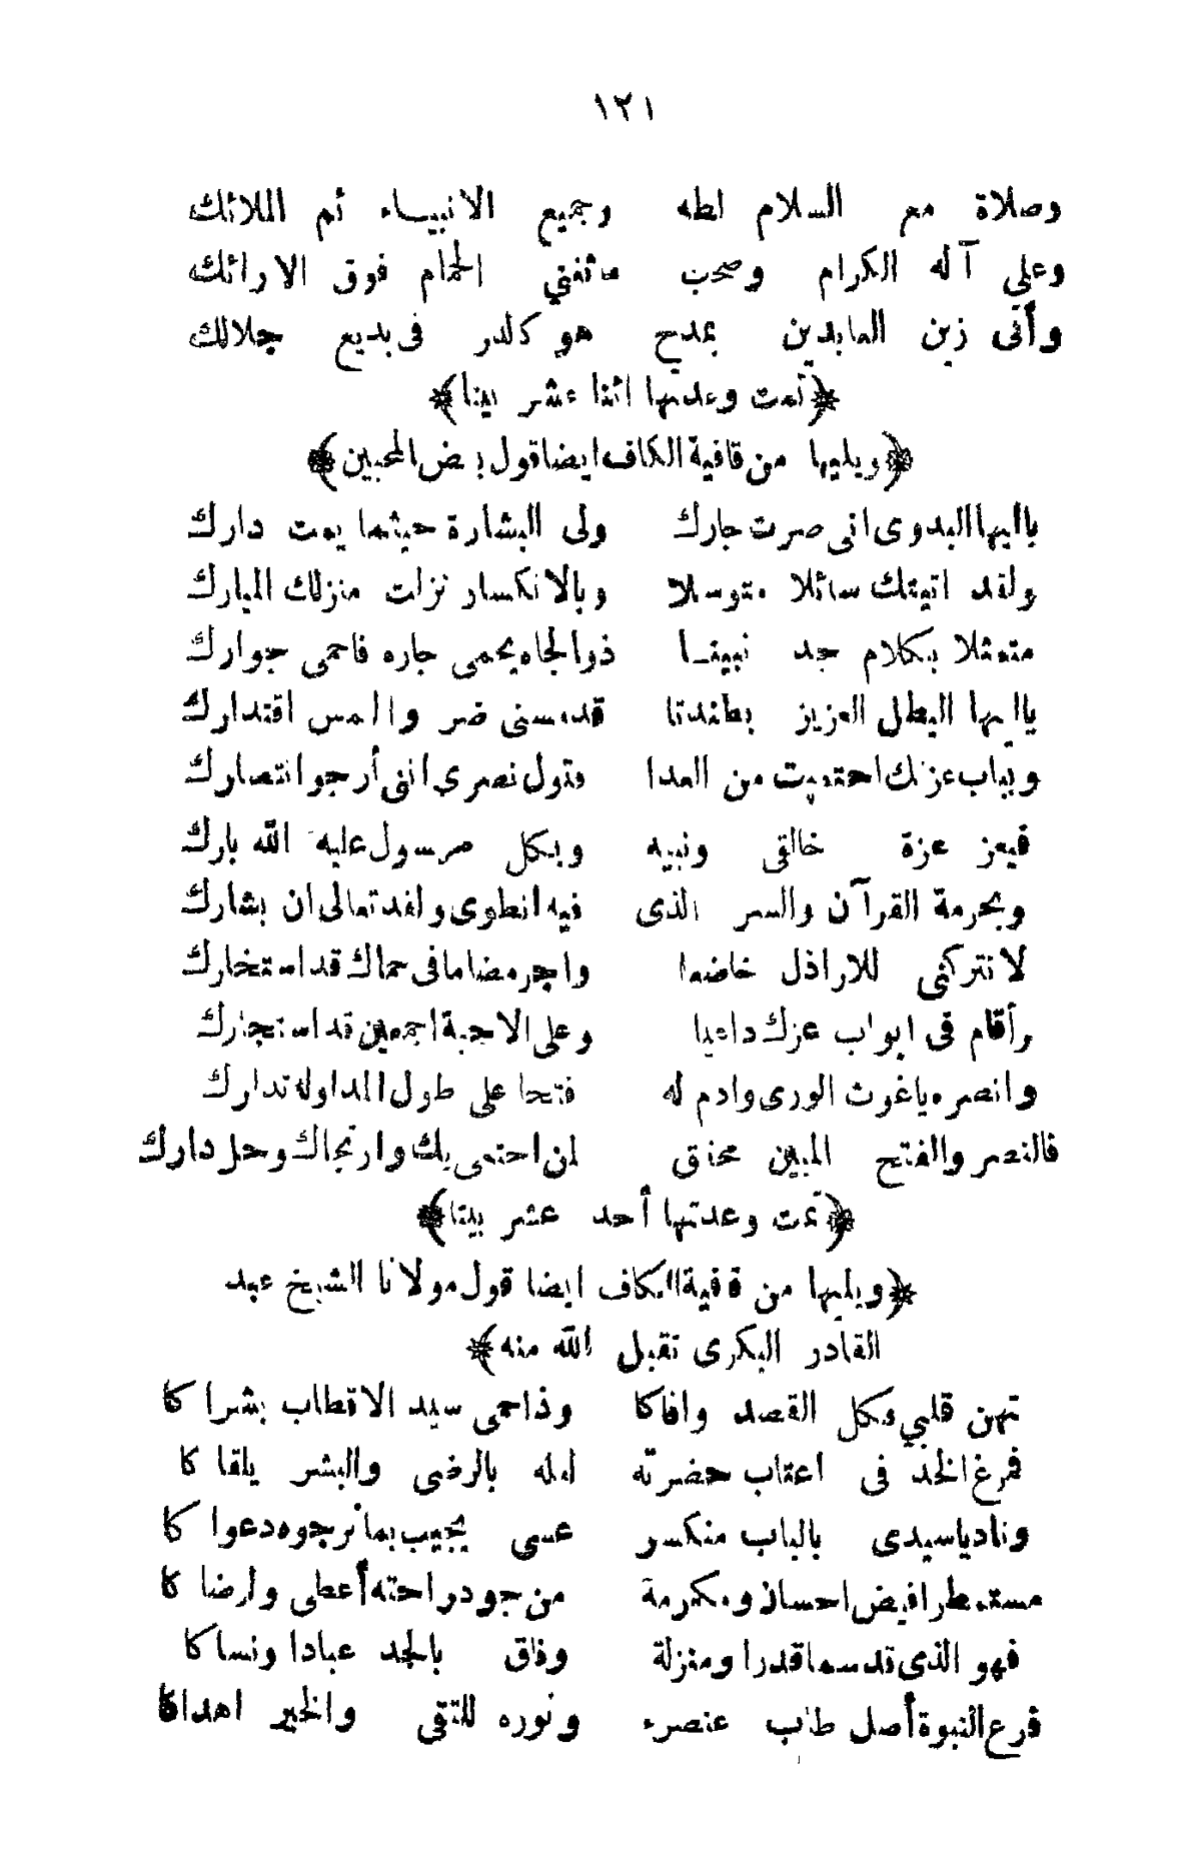 ١٢١
وصلاة مع السلام لطه وجميع الانبيـاء ثم الملائك
وعلى آله الكرام وصحب ماتغنى الحمام فوق الارائك
وأتى زين العابدين بمدح هو كالدر فى بديع جلالك
﴿تمت وعدتها اثنا عشر بيتا﴾
﴿ويليها من قافية الكاف ايضا قول بعض المحبين﴾
يا ايها البدوى انى صرت جارك ولى البشارة حيثما يممت دارك
ولقد اتيتك سائلا متوسلا وبالانكسار نزلت منزلك المبارك
متمثلا بكلام جد نبينـا ذو الجاه يحمى جاره فاحمى جوارك
يا ايها البطل العزيز بطندتا قد مسنى ضر والمس اقتدارك
وبباب عزك احتميت من العدا فتول نصرى اننى أرجو انتصارك
فبعز عزة خالقى ونبيه وبكل مرسول عليه الله بارك
وبحرمة القرآن والسر الذى فيه انطوى ولقد تعالى ان يشارك
لا تتركنى للاراذل خاضعا واجر مضاما فى حماك قد استخارك
وأقام فى ابواب عزك داعيا وعلى الاحبة اجمعين قد استجارك
وانصره ياغوث الورى وادم له فتحا على طول المداوله تدارك
فالنصر والفتح المبين محقق لمن احتمى بك وارتجاك وحل دارك
﴿تمت وعدتها أحد عشر بيتا﴾
﴿ويليها من قافية الكاف ايضا قول مولانا الشيخ عبد
القادر البكرى تقبل الله منه﴾
تهن قلبي فكل القصد وافاكا وذا حمى سيد الاقطاب بشراكا
فمرغ الخد فى اعتاب حضرته لعله بالرضى والبشر يلقاكا
وناد ياسيدى بالباب منكسر عسى يجيب بما نرجوه دعواكا
مستمطرا فيض احسان ومكرمة من جود راحته أعطى وأرضاكا
فهو الذى قد سما قدرا ومنزلة وفاق بالجد عبادا ونساكا
فرع النبوة أصل طاب عنصره ونوره للتقى والخير اهداكا